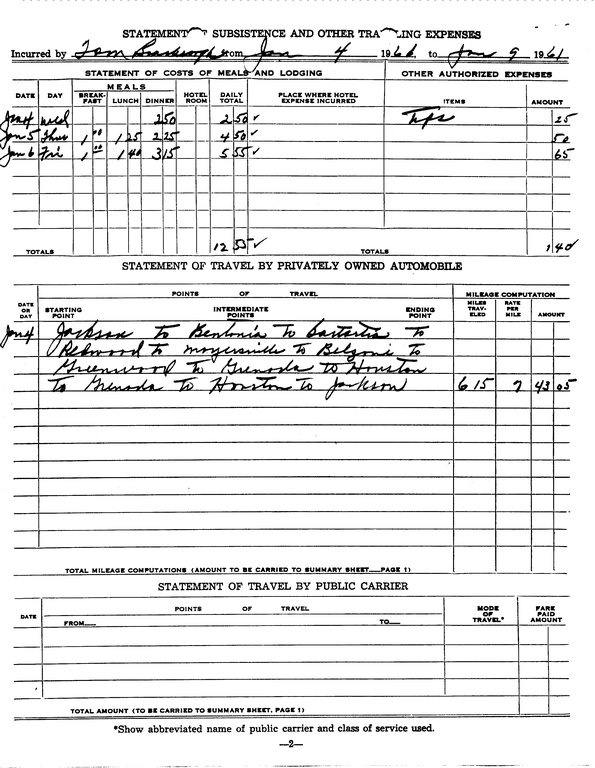 STATEMENT SUBSISTENCE AND OTHER TRA LING EXPENSES
Incurred by Tom from Jan 4 1961 to Jan 9 1961
STATEMENT OF COSTS OF MEALS AND LODGING OTHER AUTHORIZED EXPENSES
DATE DAY MEALS HOTEL ROOM DAILY TOTAL PLACE WHERE HOTEL EXPENSE INCURRED ITEMS AMOUNT
BREAK-FAST LUNCH DINNER
Jan 4 Wed 2 50 2 50 ✓ Tips 25
Jan 5 Thur 1 00 1 25 2 25 4 50 ✓ 50
Jan 6 Fri 1 00 1 40 3 15 5 55 ✓ 65
TOTALS 12 55 ✓ TOTALS 1 40
STATEMENT OF TRAVEL BY PRIVATELY OWNED AUTOMOBILE
DATE OR DAY POINTS OF TRAVEL MILEAGE COMPUTATION
STARTING POINT INTERMEDIATE POINTS ENDING POINT MILES TRAV-ELED RATE PER MILE AMOUNT
Jan 4 Jackson to Bentonia to Satartia to
Redwood to Mayersville to Belzoni to
Greenwood to Grenada to Houston
to Grenada to Houston to Jackson 615 7 43 05
TOTAL MILEAGE COMPUTATIONS (AMOUNT TO BE CARRIED TO SUMMARY SHEET—PAGE 1)
STATEMENT OF TRAVEL BY PUBLIC CARRIER
DATE POINTS OF TRAVEL MODE OF TRAVEL* FARE PAID AMOUNT
FROM— TO—
TOTAL AMOUNT (TO BE CARRIED TO SUMMARY SHEET, PAGE 1)
*Show abbreviated name of public carrier and class of service used.
—2—